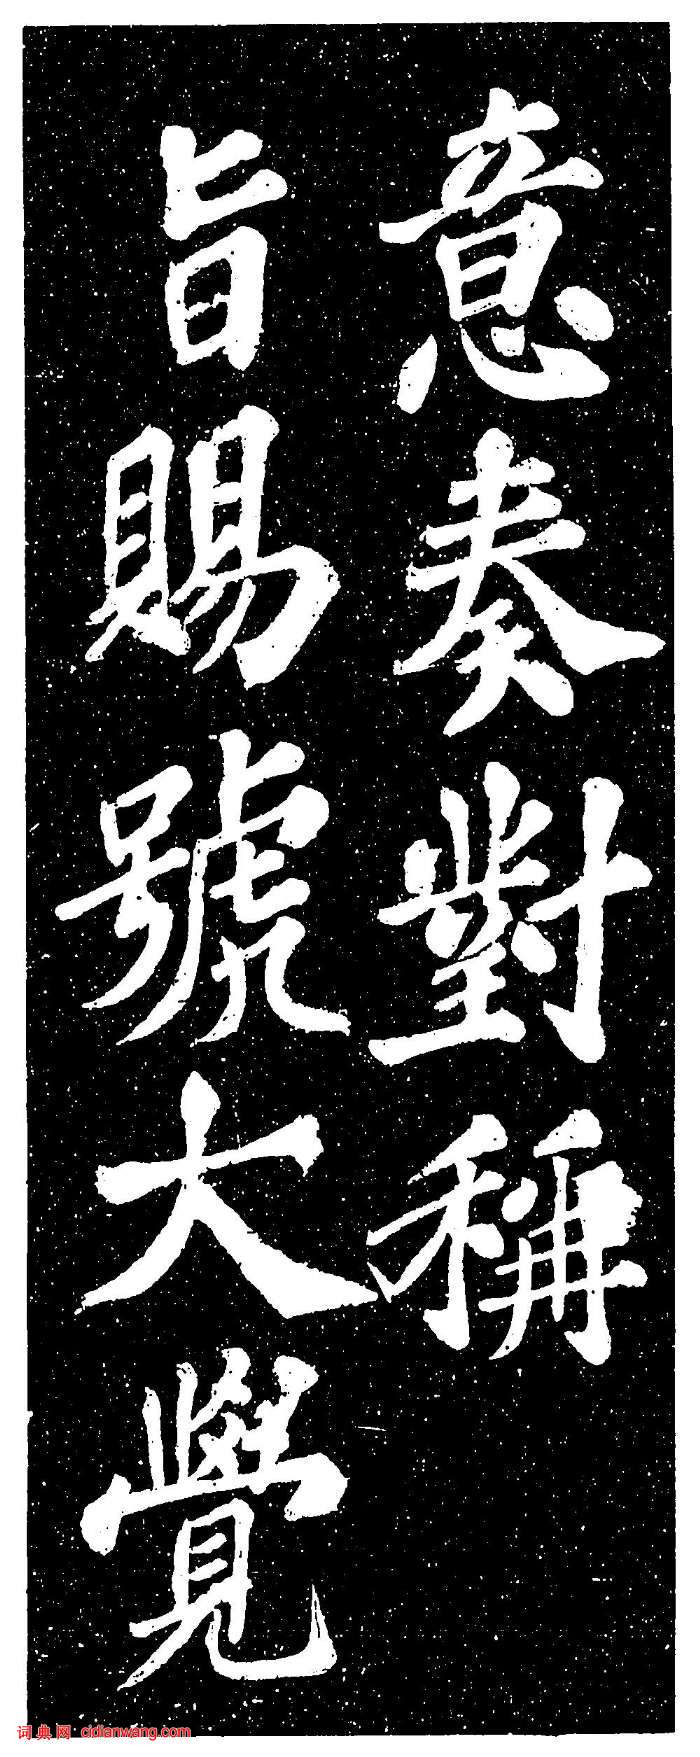 意奏對稱
旨賜號大覺
词典网 cidianwang.com